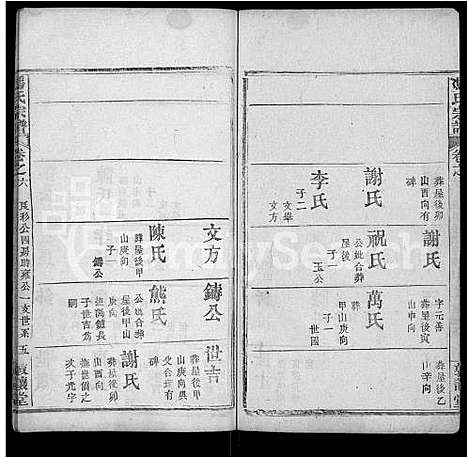 氏宗譜
卷之
謝氏
葬屋後卯
山酉向有
碑
李氏
子二
文舉
文方
謝氏
字元善
葬屋後寅
山申向
祝氏
公妣合葬
屋後
子一
玉公
萬氏
甲山庚向
子一世國
葬屋後乙
山辛向
文方
陳氏
葬屋後甲
山庚向
子一
鑄公
鑄公
熊氏
公妣合葬
屋後甲山
庚向
撫馮鎰長
子世吉爲
嗣
世吉
葬屋後甲
山庚向與
父合墳有
碑
謝氏
葬屋後卯
山酉向
撫世價之
次子光宇
氏宗譜
卷之六
公一支世系
五
FamilySearch